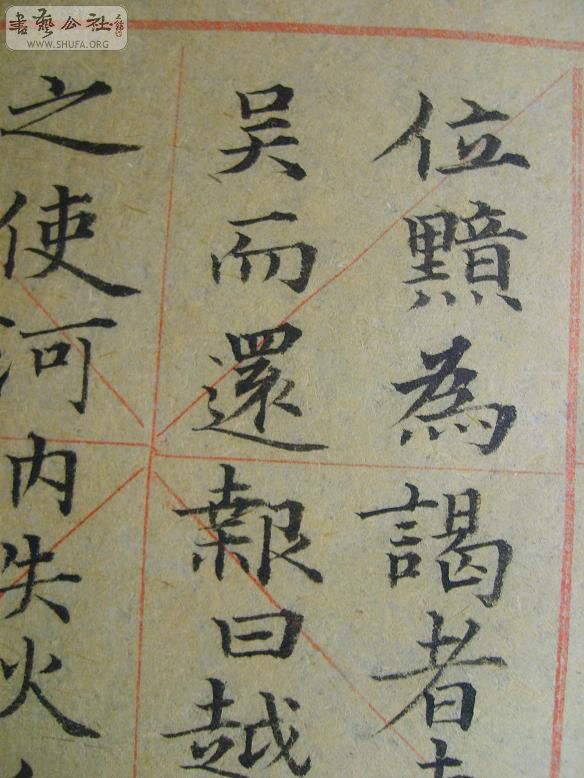 書藝公社
WWW.SHUFA.ORG
位黯為謁者
吳而還報曰越
之使河內失火